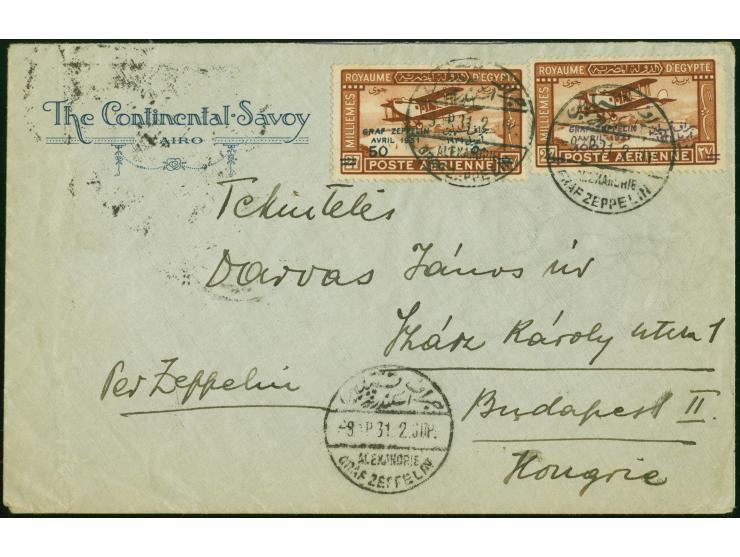 The Continental-Savoy
CAIRO
ROYAUME D'EGYPTE
MILLIEMES
GRAF ZEPPELIN
AVRIL 1931
50
POSTE AÉRIENNE
ROYAUME D'EGYPTE
MILLIEMES
GRAF ZEPPELIN
AVRIL
27 POSTE AÉRIENNE ٢٧
ALEXANDRIE
GRAF ZEPPELIN
Tekintetes
Darvas János úr
Száz Károly utca 1
Per Zeppelin
Budapest II.
Hongrie
ALEXANDRIE
GRAF ZEPPELIN